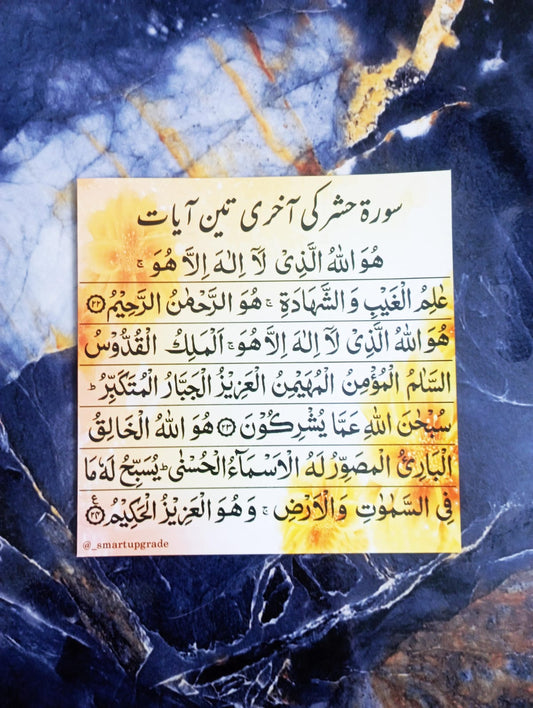 سورۃ حشر کی آخری تین آیات
هُوَ اللّٰهُ الَّذِیْ لَاۤ اِلٰهَ اِلَّا هُوَ ۚ
عٰلِمُ الْغَیْبِ وَ الشَّهَادَةِ ۚ هُوَ الرَّحْمٰنُ الرَّحِیْمُ ۝۲۲
هُوَ اللّٰهُ الَّذِیْ لَاۤ اِلٰهَ اِلَّا هُوَ ۚ اَلْمَلِكُ الْقُدُّوْسُ
السَّلٰمُ الْمُؤْمِنُ الْمُهَیْمِنُ الْعَزِیْزُ الْجَبَّارُ الْمُتَكَبِّرُ ؕ
سُبْحٰنَ اللّٰهِ عَمَّا یُشْرِكُوْنَ ۝۲۳ هُوَ اللّٰهُ الْخَالِقُ
الْبَارِئُ الْمُصَوِّرُ لَهُ الْاَسْمَآءُ الْحُسْنٰی ؕ یُسَبِّحُ لَهٗ مَا
فِی السَّمٰوٰتِ وَ الْاَرْضِ ۚ وَ هُوَ الْعَزِیْزُ الْحَكِیْمُ ۝۲۴ ع
@_smartupgrade